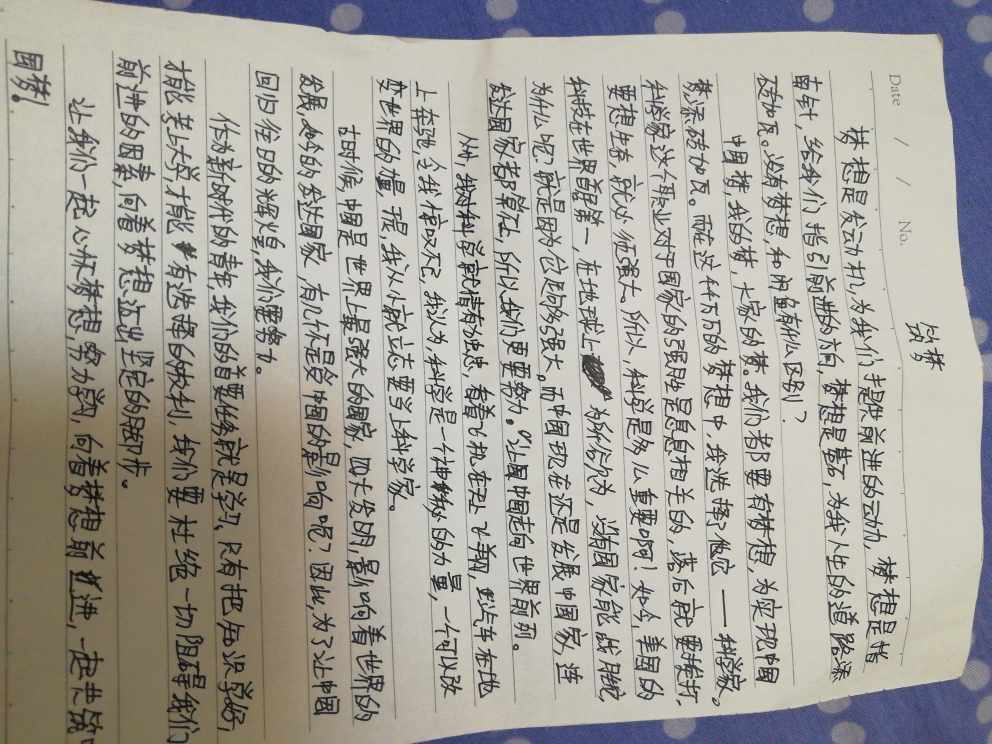 Date / / No.
筑梦
梦想是发动机,为我们提供前进的动力,梦想是指
南针,给我们指引前进的方向,梦想是基石,为我人生的道路添
砖加瓦。没有梦想,和咸鱼有什么区别?
中国梦,我的梦,大家的梦。我们都要有梦想,为实现中国
梦添砖加瓦。而在这千千万万的梦想中,我选择了他它——科学家。
科学家这个职业对于国家的强胜是息息相关的,落后就要挨打,
要想生存,就必须强大。所以,科学是多么重要啊!如今,美国的
科技在世界首屈第一,在地球上为所欲为,没有国家能战胜它
为什么呢?就是因为它足够强大。而中国现在还是发展中国家,连
发达国家都算不上,所以我们更要努力。让中国走向世界前列。
从小我对科学就情有独忠,看着飞机在天上飞翔,汽车在地
上奔驰,令我惊叹不已,我认为,科学是一个神秘的力量,一个可以改
变世界的力量,于是,我从小就立志要当上科学家。
古时候,中国是世界上最强大的国家,四大发明,影响着世界的
发展,如今的发达国家,有几个不是受中国的影响呢?因此,为了让中国
回归往日的辉煌,我们要努力。
作为新时代的青年,我们的首要任务就是学习,只有把知识学好,
才能考上大学才能有选择的权利,我们要杜绝一切阻碍我们
前进的因素,向着梦想迈出坚定的脚步。
让我们一起心怀梦想,努力学习,向着梦想前进,一起共筑中
国梦!